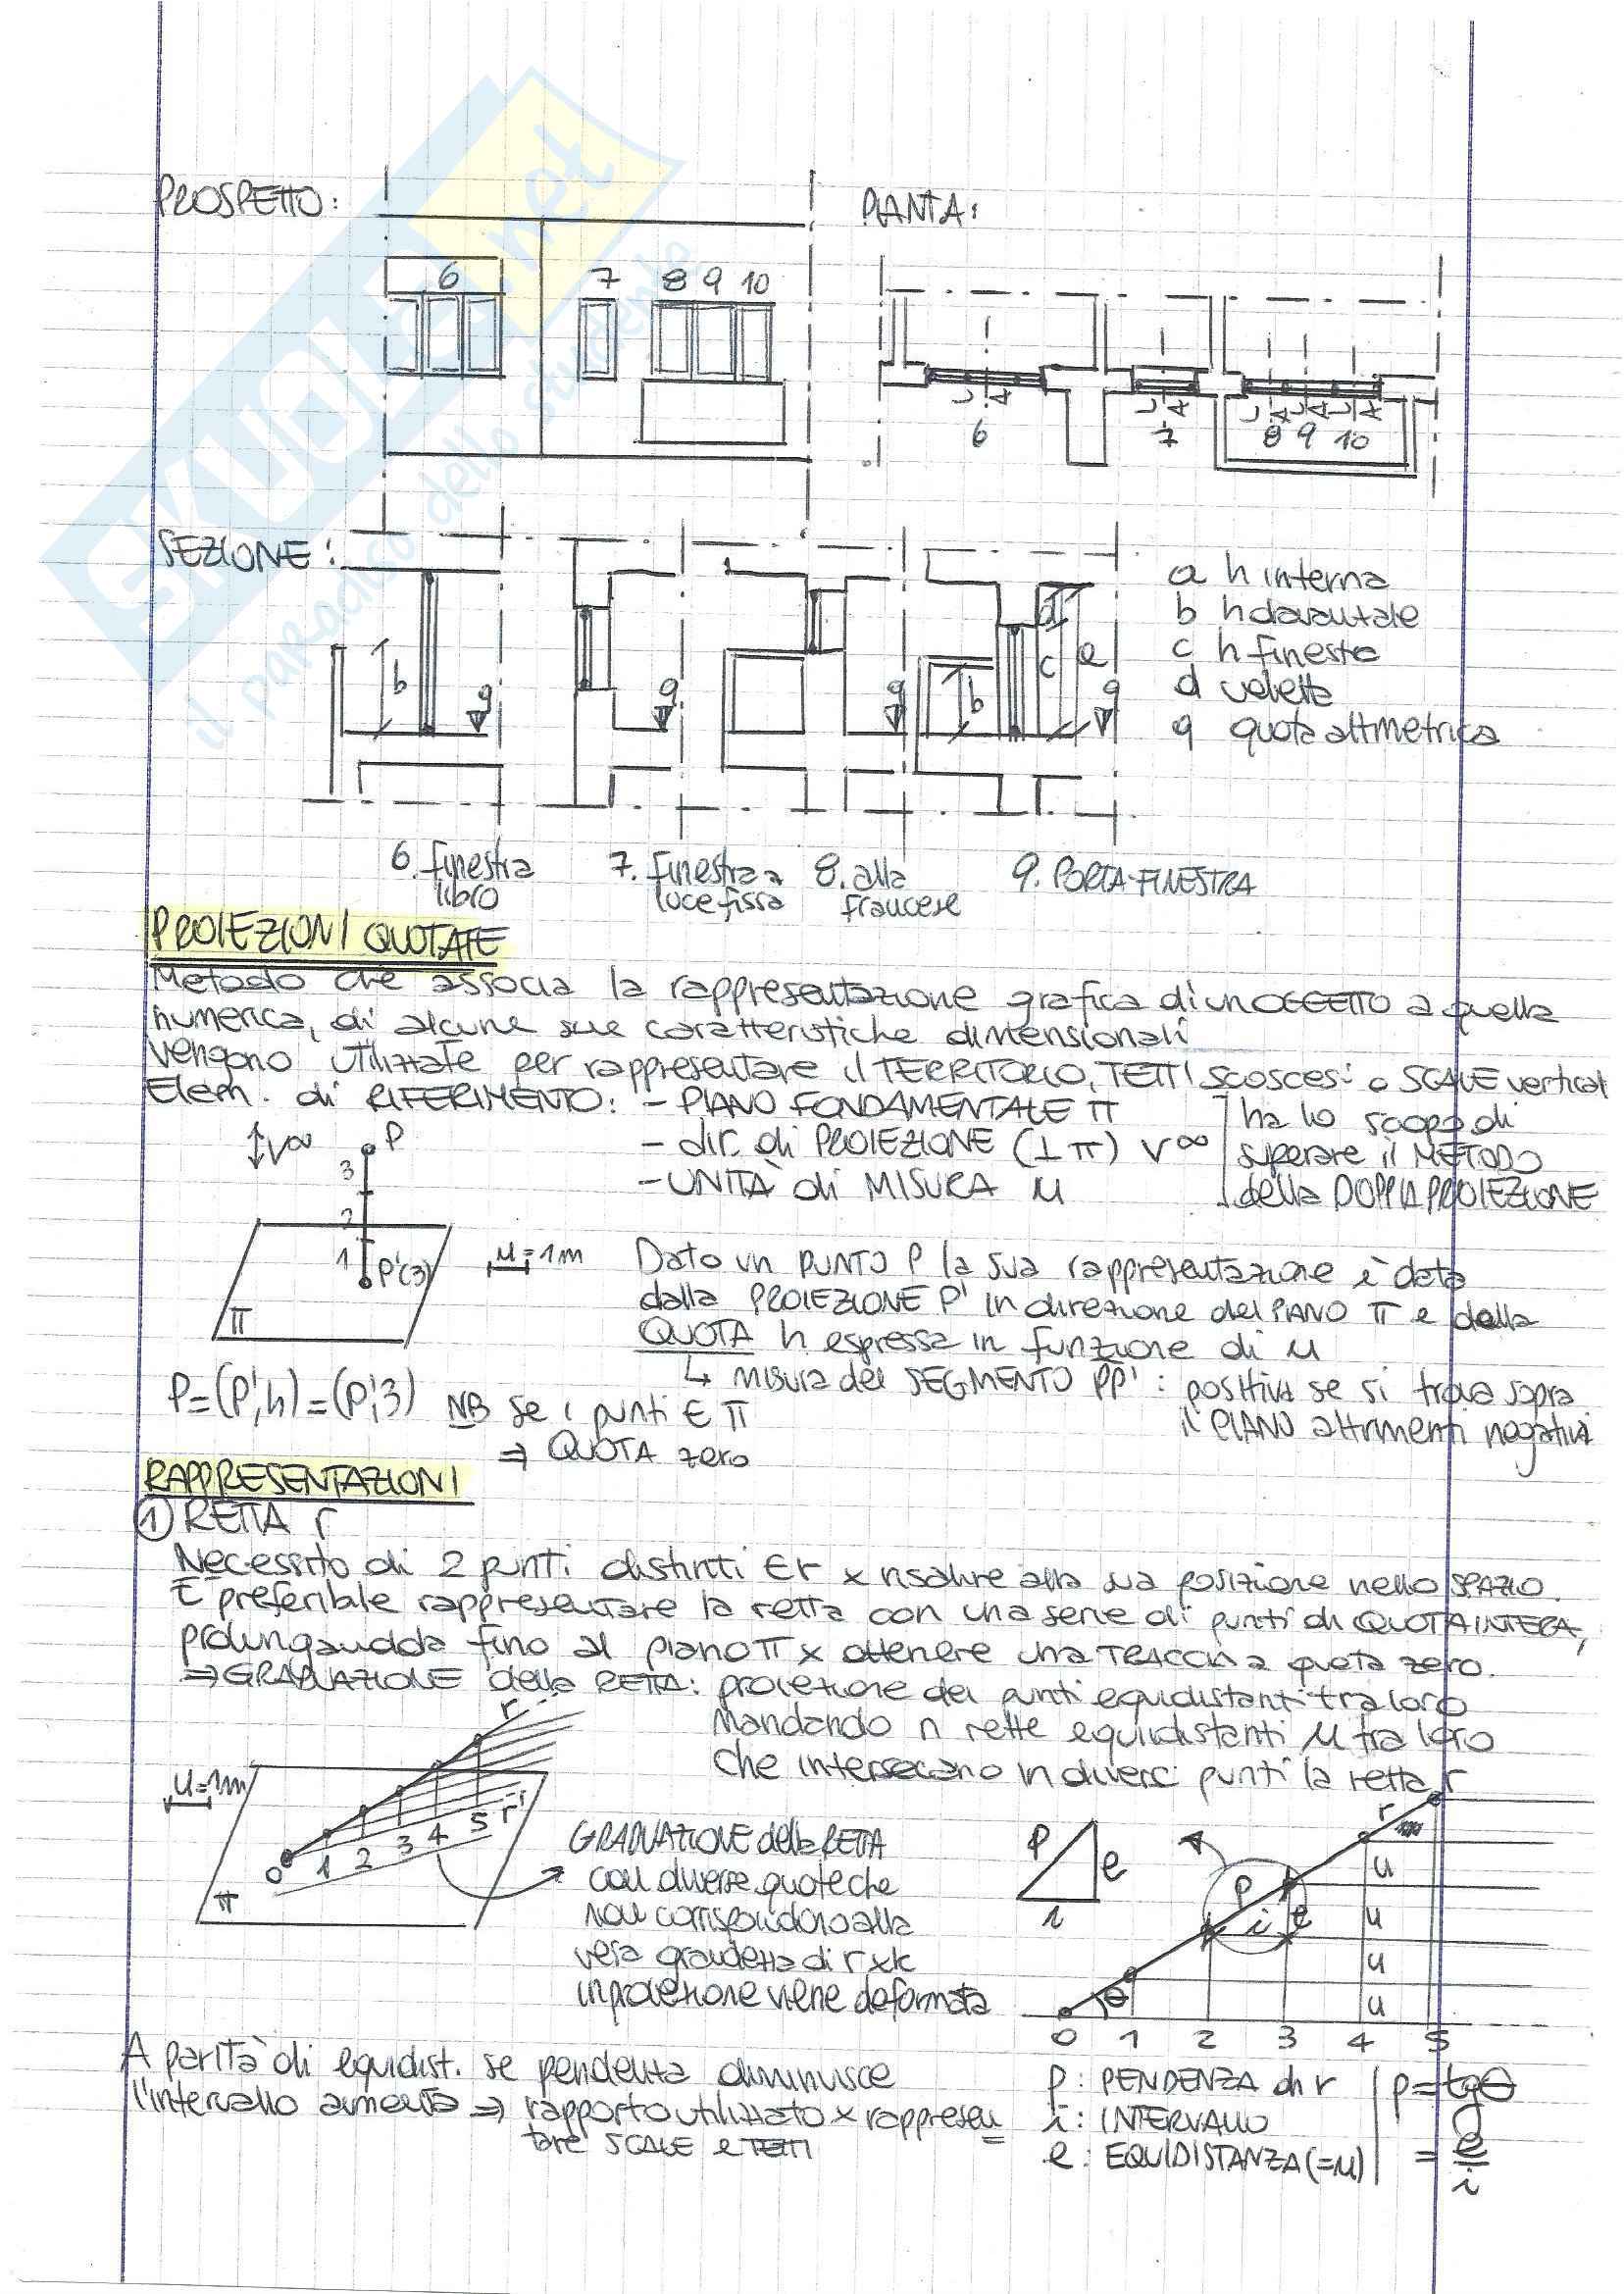 PROSPETTO:
PIANTA:
6 7 8 9 10
6 7 8 9 10
SEZIONE:
a h interna
b h davanzale
c h finestra
d veletta
q quota altimetrica
b q q q b d c a q
6. finestra libro
7. finestra a luce fissa
8. alla francese
9. PORTA-FINESTRA
PROIEZIONI QUOTATE
Metodo che associa la rappresentazione grafica di un OGGETTO a quella
numerica, di alcune sue caratteristiche dimensionali
vengono utilizzate per rappresentare il TERRITORIO, TETTI scoscesi o SCALE verticali
Elem. di RIFERIMENTO: - PIANO FONDAMENTALE π
- dir. di PROIEZIONE (⊥ π) V∞
- UNITÀ di MISURA u
ha lo scopo di
superare il METODO
della DOPPIA PROIEZIONE
V∞ P
3
2
1 P'(3)
π
u=1m
Dato un PUNTO P la sua rappresentazione è data
dalla PROIEZIONE P' in direzione del PIANO π e della
QUOTA h espressa in funzione di u
↳ misura del SEGMENTO PP' : positiva se si trova sopra
il PIANO altrimenti negativa
P=(P',h)=(P',3) NB se i punti ∈ π
⇒ QUOTA zero
RAPPRESENTAZIONI
1 RETTA r
Necessito di 2 punti distinti ∈ r x risalire alla sua posizione nello SPAZIO.
È preferibile rappresentare la retta con una serie di punti di QUOTA INTERA,
prolungandola fino al piano π x ottenere una TRACCIA a quota zero.
⇒ GRADUAZIONE della RETTA: proiezione dei punti equidistanti tra loro
mandando n rette equidistanti u tra loro
che intersecano in diversi punti la retta r
u=1m
r
0 1 2 3 4 5 r'
π
GRADUAZIONE della RETTA
con diverse quote che
non corrispondono alla
vera grandezza di r xk
in proiezione viene deformata
p e i
r
p i e
u
u
u
u
θ
0 1 2 3 4 5
A parità di equidist. se pendenza diminuisce
l'intervallo aumenta ⇒ rapporto utilizzato x rappresen
tare SCALE e TETTI
p: PENDENZA di r
i: INTERVALLO
e: EQUIDISTANZA (=u)
p=tgθ
= e/i
SKUOLA.net
il paradiso dello studente